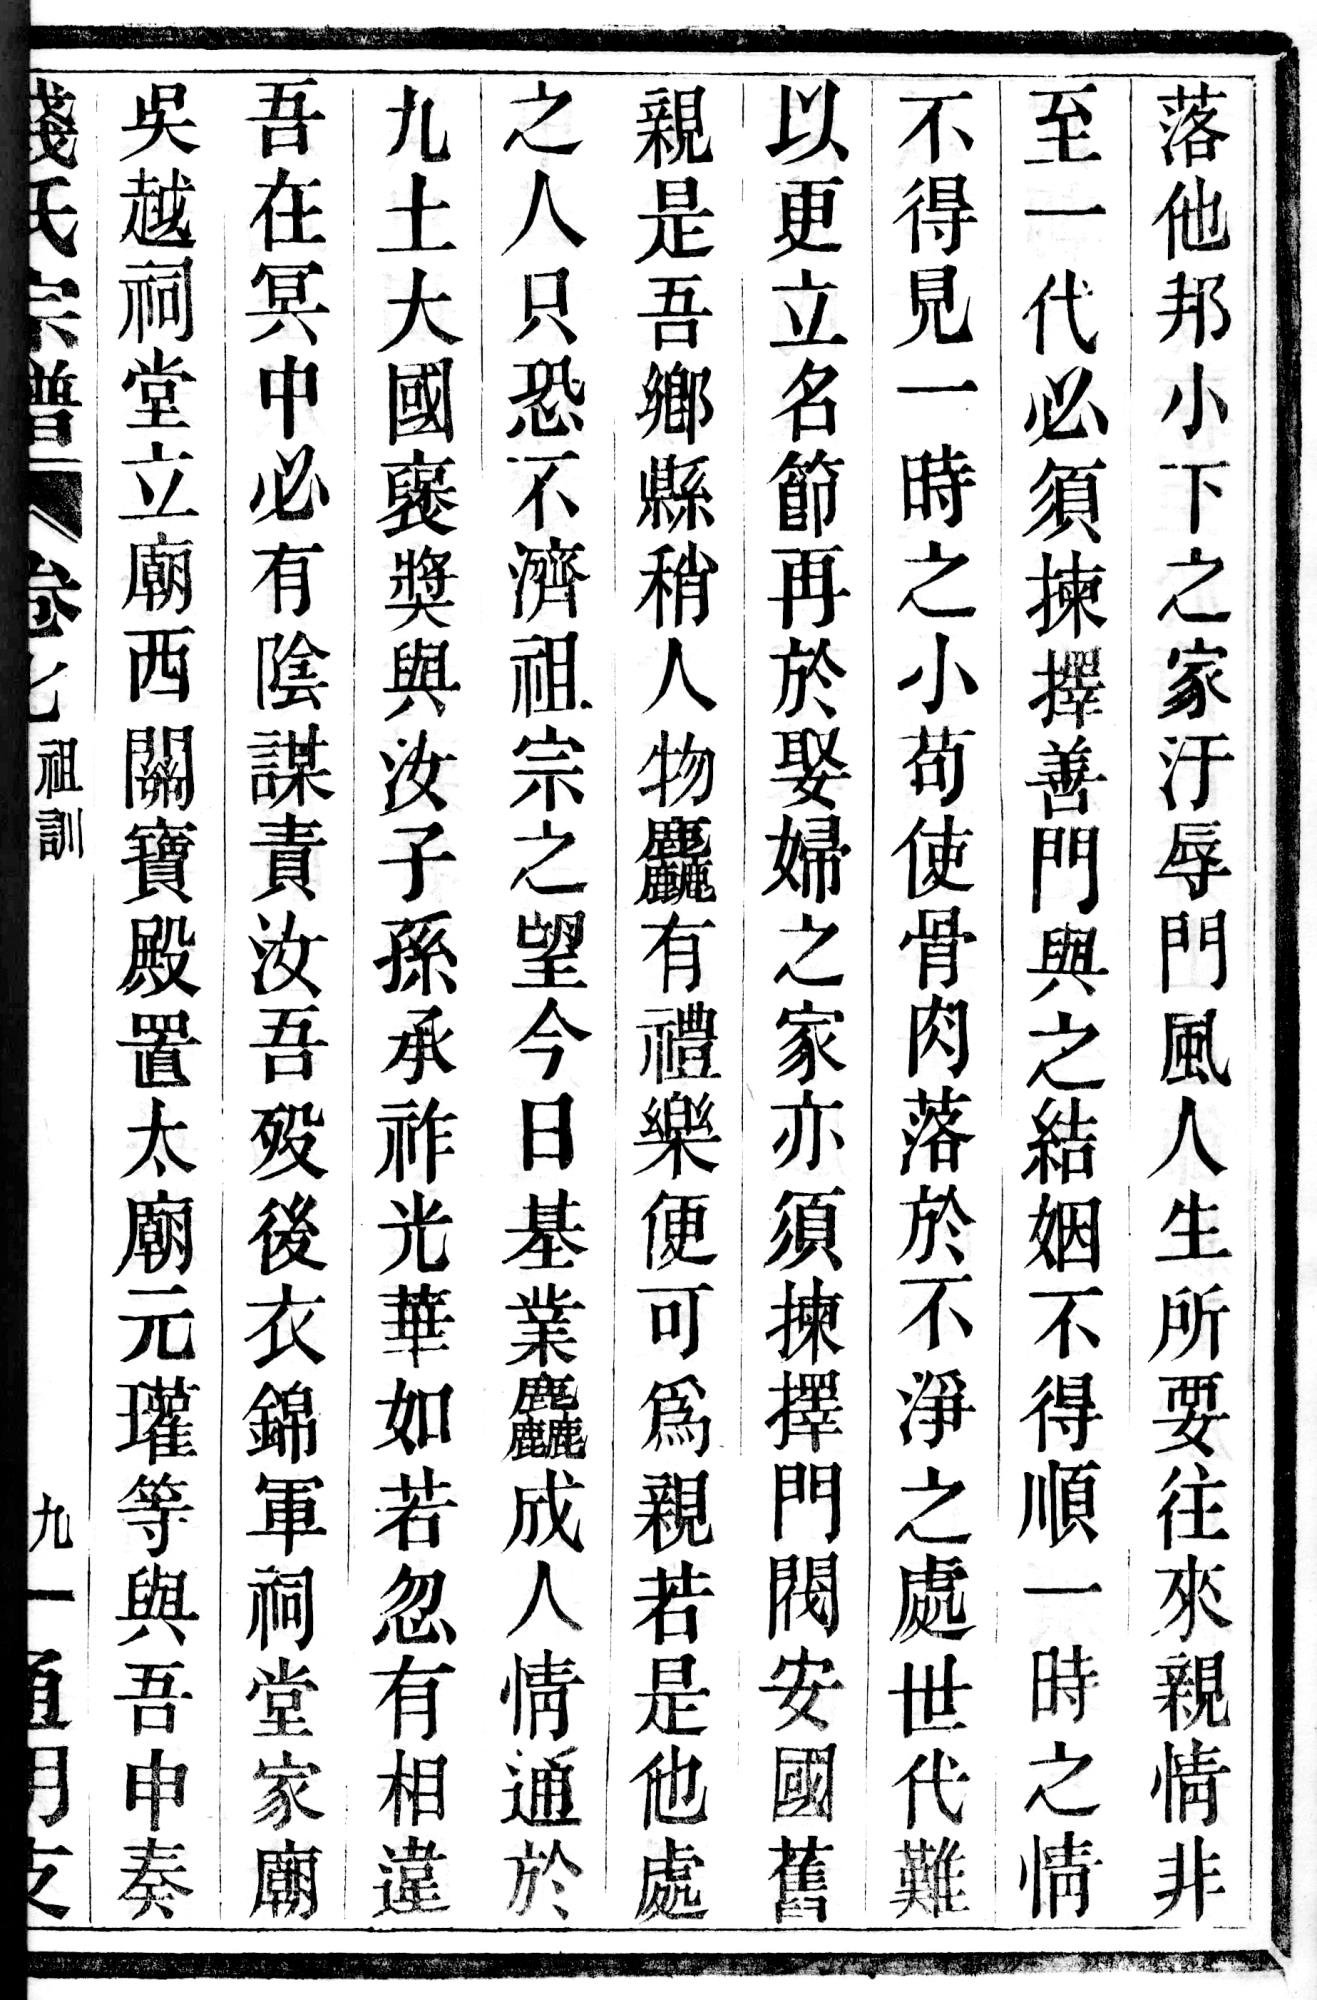 落他邦小下之家汙辱門風人生所要往來親情非
至一代必須揀擇善門與之結姻不得順一時之情
不得見一時之小苟使骨肉落於不淨之處世代難
以更立名節再於娶婦之家亦須揀擇門閥安國舊
親是吾鄉縣稍人物麤有禮樂便可為親若是他處
之人只恐不濟祖宗之望今日基業麤成人情通於
九土大國褒獎與汝子孫承祚光華如若忽有相違
吾在冥中必有陰謀責汝吾歿後衣錦軍祠堂家廟
吳越祠堂立廟西關寶殿置太廟元瓘等與吾申奏
錢氏宗譜 卷七 祖訓 九 通明支